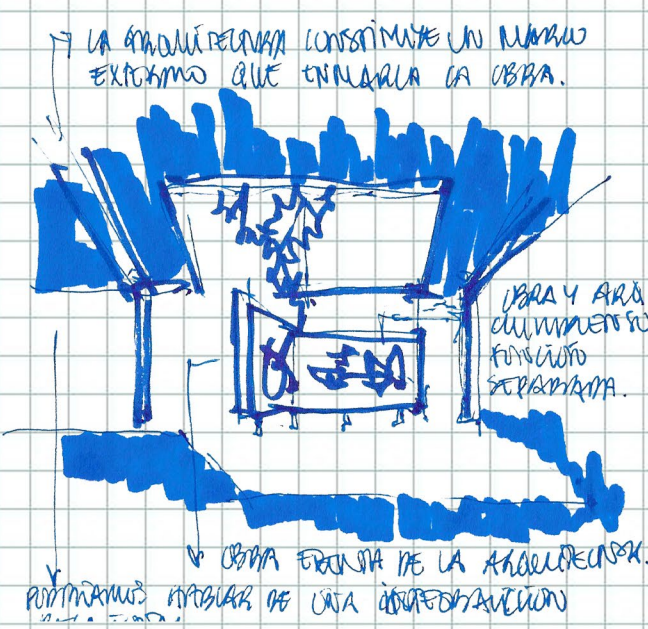 LA ARQUITECTURA CONSTITUYE UN MARCO
EXTERNO QUE ENMARCA LA OBRA.
OBRA Y ARQ
CUMPLEN SU
FUNCIÓN
SEPARADA.
OBRA EXENTA DE LA ARQUITECTURA.
PODRÍAMOS HABLAR DE UNA INTEGRACIÓN